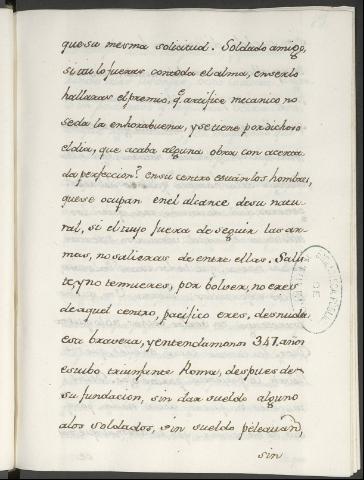 que su mesma solicitud. Soldado amigo,
si tu lo fueras con toda el alma, en serlo
hallaras el premio, q.e artifice mecanico no
se da la enhorabuena, y se tiene por dichoso
el dia, que acaba alguna obra con acerta
da perfeccion? en su centro estan los hombres,
que se ocupan en el alcance de su natu
ral, si el tuyo fuera de seguir las ar-
mas, no salieras de entre ellas. Salis
te, y no te mueres, por bolver, no eres
de aquel centro, pacifico eres, desnuda
esa braveza, y entendamonos 347. años
estubo triunfante Roma, despues de
su fundacion, sin dar sueldo alguno
a los soldados, sin sueldo peleavan,
sin